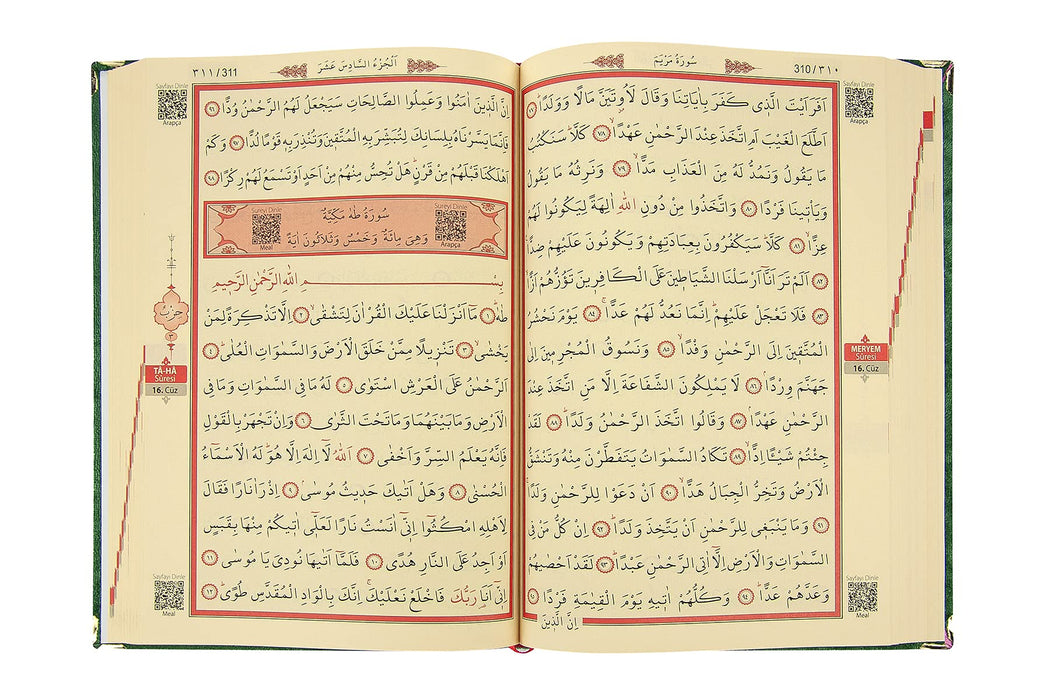 310/٣١٠
سُورَةُ مَرْيَمَ
Sayfayı Dinle
Arapça
اَفَرَاَيْتَ الَّذٖي كَفَرَ بِاٰيَاتِنَا وَقَالَ لَاُوتَيَنَّ مَالًا وَوَلَدًا ﴿٧٧﴾
اَطَّلَعَ الْغَيْبَ اَمِ اتَّخَذَ عِنْدَ الرَّحْمٰنِ عَهْدًا ﴿٧٨﴾ كَلَّا سَنَكْتُبُ
مَا يَقُولُ وَنَمُدُّ لَهُ مِنَ الْعَذَابِ مَدًّا ﴿٧٩﴾ وَنَرِثُهُ مَا يَقُولُ
وَيَاْتٖينَا فَرْدًا ﴿٨٠﴾ وَاتَّخَذُوا مِنْ دُونِ اللّٰهِ اٰلِهَةً لِيَكُونُوا لَهُمْ
عِزًّا ﴿٨١﴾ كَلَّا سَيَكْفُرُونَ بِعِبَادَتِهِمْ وَيَكُونُونَ عَلَيْهِمْ ضِدًّا
﴿٨٢﴾ اَلَمْ تَرَ اَنَّا اَرْسَلْنَا الشَّيَاطٖينَ عَلَى الْكَافِرٖينَ تَؤُزُّهُمْ اَزًّا
﴿٨٣﴾ فَلَا تَعْجَلْ عَلَيْهِمْ اِنَّمَا نَعُدُّ لَهُمْ عَدًّا ﴿٨٤﴾ يَوْمَ نَحْشُرُ
الْمُتَّقٖينَ اِلَى الرَّحْمٰنِ وَفْدًا ﴿٨٥﴾ وَنَسُوقُ الْمُجْرِمٖينَ اِلٰى
جَهَنَّمَ وِرْدًا ﴿٨٦﴾ لَا يَمْلِكُونَ الشَّفَاعَةَ اِلَّا مَنِ اتَّخَذَ عِنْدَ
الرَّحْمٰنِ عَهْدًا ﴿٨٧﴾ وَقَالُوا اتَّخَذَ الرَّحْمٰنُ وَلَدًا ﴿٨٨﴾ لَقَدْ
جِئْتُمْ شَيْـًٔا اِدًّا ﴿٨٩﴾ تَكَادُ السَّمٰوَاتُ يَتَفَطَّرْنَ مِنْهُ وَتَنْشَقُّ
الْاَرْضُ وَتَخِرُّ الْجِبَالُ هَدًّا ﴿٩٠﴾ اَنْ دَعَوْا لِلرَّحْمٰنِ وَلَدًا
﴿٩١﴾ وَمَا يَنْبَغٖي لِلرَّحْمٰنِ اَنْ يَتَّخِذَ وَلَدًا ﴿٩٢﴾ اِنْ كُلُّ مَنْ فِي
السَّمٰوَاتِ وَالْاَرْضِ اِلَّا اٰتِي الرَّحْمٰنِ عَبْدًا ﴿٩٣﴾ لَقَدْ اَحْصٰيهُمْ
وَعَدَّهُمْ عَدًّا ﴿٩٤﴾ وَكُلُّهُمْ اٰتٖيهِ يَوْمَ الْقِيٰمَةِ فَرْدًا ﴿٩٥﴾
اِنَّ الَّذٖينَ
MERYEM
Sûresi
16. Cüz
Sayfayı Dinle
Meal
٣١١/311
اَلْجُزْءُ السَّادِسَ عَشَرَ
Sayfayı Dinle
Arapça
اِنَّ الَّذٖينَ اٰمَنُوا وَعَمِلُوا الصَّالِحَاتِ سَيَجْعَلُ لَهُمُ الرَّحْمٰنُ وُدًّا ﴿٩٦﴾
فَاِنَّمَا يَسَّرْنَاهُ بِلِسَانِكَ لِتُبَشِّرَ بِهِ الْمُتَّقٖينَ وَتُنْذِرَ بِهٖ قَوْمًا لُدًّا ﴿٩٧﴾ وَكَمْ
اَهْلَكْنَا قَبْلَهُمْ مِنْ قَرْنٍ هَلْ تُحِسُّ مِنْهُمْ مِنْ اَحَدٍ اَوْ تَسْمَعُ لَهُمْ رِكْزًا ﴿٩٨﴾
Sureyi Dinle
Arapça
سُورَةُ طٰهٰ مَكِّيَّةٌ
وَهِيَ مِائَةٌ وَخَمْسٌ وَثَلَاثُونَ اٰيَةً
Sureyi Dinle
Meal
بِسْمِ اللّٰهِ الرَّحْمٰنِ الرَّحٖيمِ
طٰهٰ ﴿١﴾ مَا اَنْزَلْنَا عَلَيْكَ الْقُرْاٰنَ لِتَشْقٰى ﴿٢﴾ اِلَّا تَذْكِرَةً لِمَنْ
يَخْشٰى ﴿٣﴾ تَنْزٖيلًا مِمَّنْ خَلَقَ الْاَرْضَ وَالسَّمٰوَاتِ الْعُلٰى ﴿٤﴾
اَلرَّحْمٰنُ عَلَى الْعَرْشِ اسْتَوٰى ﴿٥﴾ لَهُ مَا فِي السَّمٰوَاتِ وَمَا فِي
الْاَرْضِ وَمَا بَيْنَهُمَا وَمَا تَحْتَ الثَّرٰى ﴿٦﴾ وَاِنْ تَجْهَرْ بِالْقَوْلِ
فَاِنَّهُ يَعْلَمُ السِّرَّ وَاَخْفٰى ﴿٧﴾ اَللّٰهُ لَا اِلٰهَ اِلَّا هُوَ لَهُ الْاَسْمَاءُ
الْحُسْنٰى ﴿٨﴾ وَهَلْ اَتٰيكَ حَدٖيثُ مُوسٰى ﴿٩﴾ اِذْ رَاٰ نَارًا فَقَالَ
لِاَهْلِهِ امْكُثُوا اِنّٖي اٰنَسْتُ نَارًا لَعَلّٖي اٰتٖيكُمْ مِنْهَا بِقَبَسٍ
اَوْ اَجِدُ عَلَى النَّارِ هُدًى ﴿١٠﴾ فَلَمَّا اَتٰيهَا نُودِيَ يَا مُوسٰى ﴿١١﴾
اِنّٖي اَنَا رَبُّكَ فَاخْلَعْ نَعْلَيْكَ اِنَّكَ بِالْوَادِ الْمُقَدَّسِ طُوًى ﴿١٢﴾
حِزْبٌ
٣
TÂ-HÂ
Sûresi
16. Cüz
Sayfayı Dinle
Meal